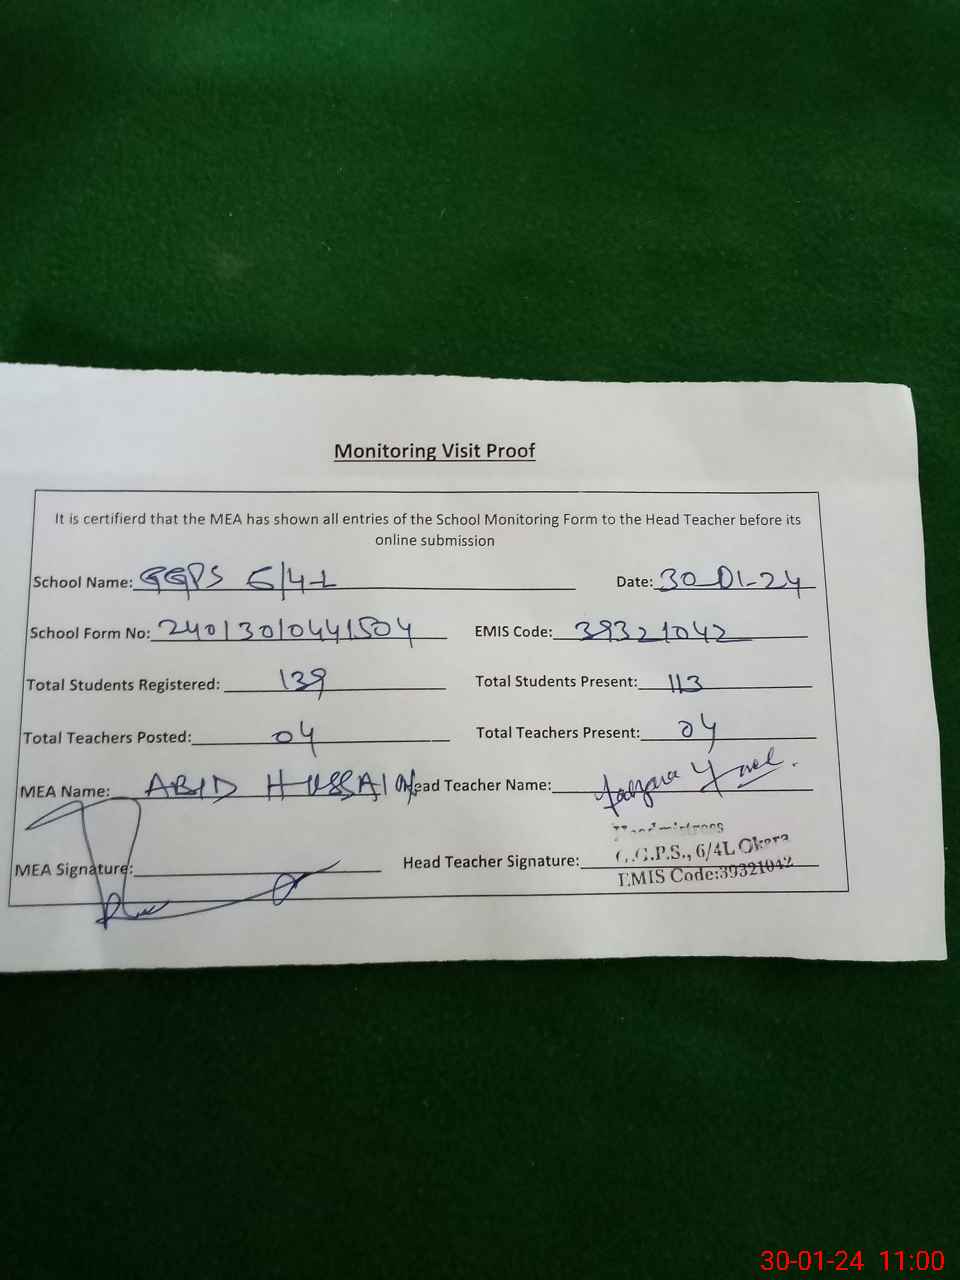 Monitoring Visit Proof
It is certifierd that the MEA has shown all entries of the School Monitoring Form to the Head Teacher before its
online submission
School Name: GGPS 6/4-L Date: 30-01-24
School Form No: 24013010441504 EMIS Code: 39321042
Total Students Registered: 139 Total Students Present: 113
Total Teachers Posted: 04 Total Teachers Present: 04
MEA Name: ABID HUSSAIN Head Teacher Name:
Headmistress
MEA Signature: Head Teacher Signature: G.G.P.S., 6/4L Okara
EMIS Code:39321042
30-01-24 11:00